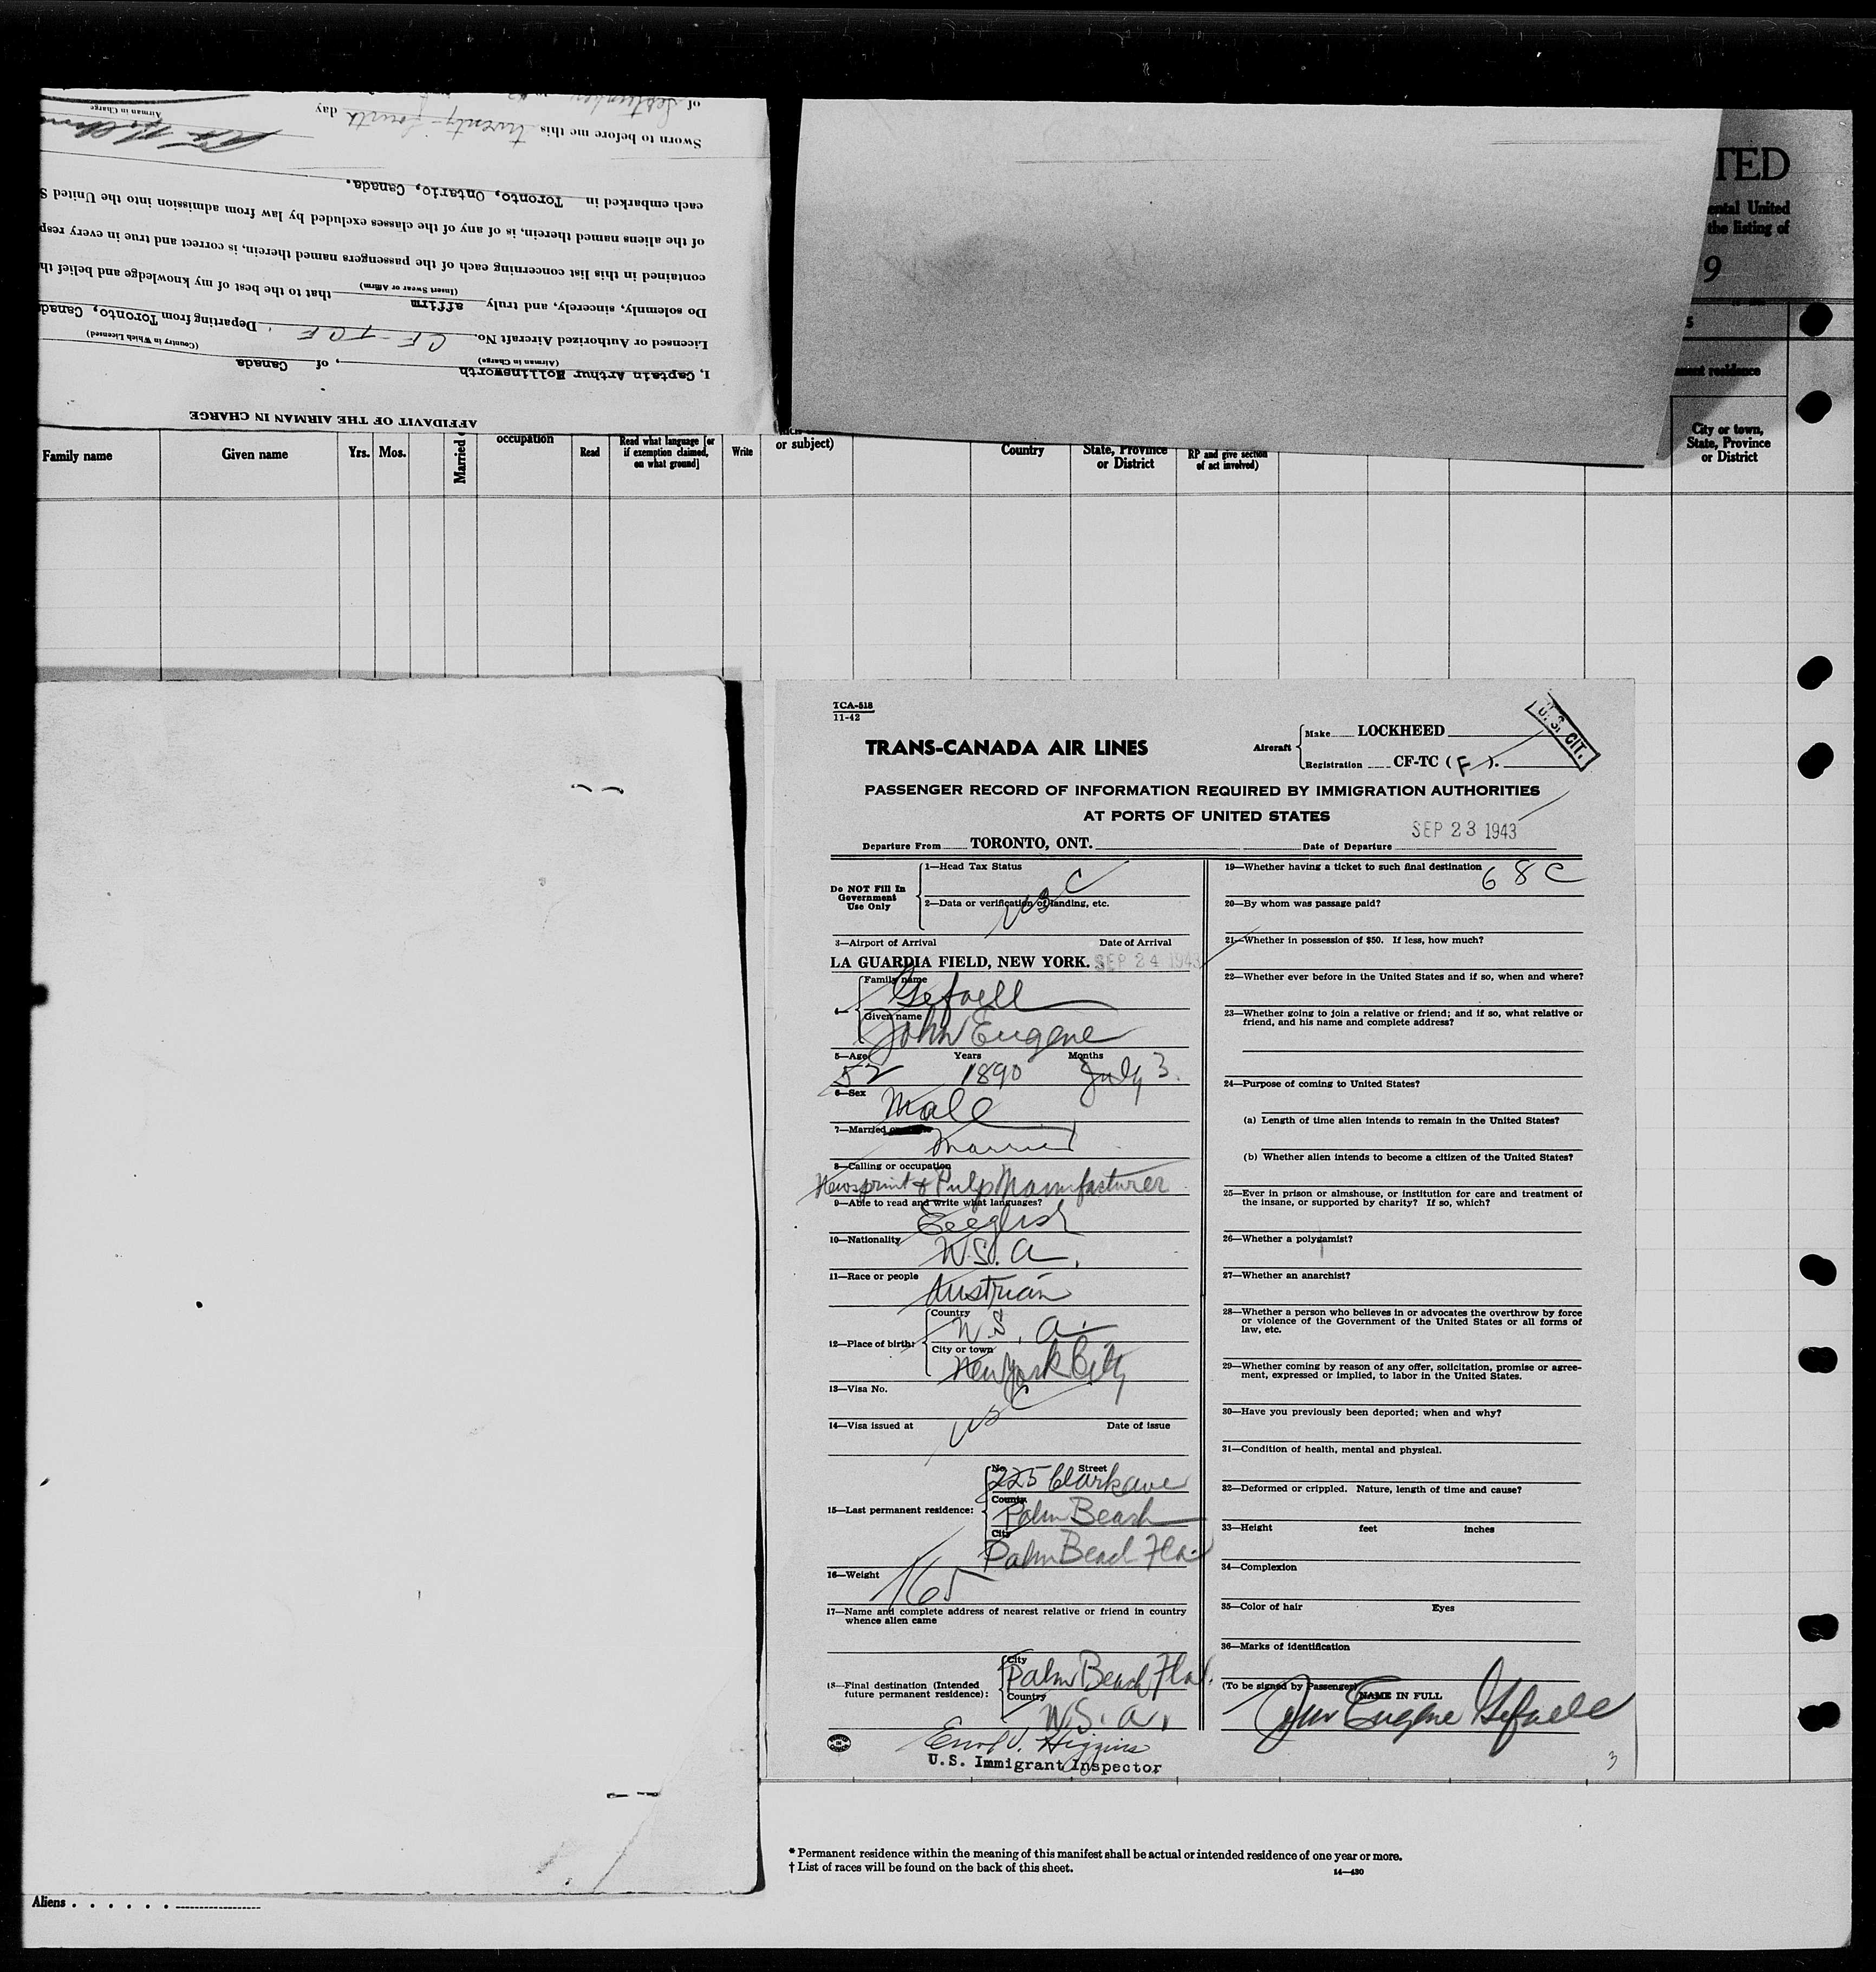 of September
Sworn to before me this twenty fourth day
Airman in Charge
each embarked in Toronto, Ontario, Canada.
of the aliens named therein, is of any of the classes excluded by law from admission into the United S
contained in this list concerning each of the passengers named therein, is correct and true in every resp
Do solemnly, sincerely, and truly affirm that to the best of my knowledge and belief th
(Insert Swear or Affirm)
Licensed or Authorized Aircraft No. CF-TCF, Departing from Toronto, Canada
(Airman in Charge) (Country in Which Licensed)
I, Captain Arthur Hollinsworth, of Canada
AFFIDAVIT OF THE AIRMAN IN CHARGE
TED
ental United
the listing of
9
5
ment residence
Family name
Given name
Yrs. Mos.
Married
occupation
Read
Read what language [or
if exemption claimed,
on what ground]
Write
or subject)
Country
State, Province
or District
RP and give section
of act involved)
City or town,
State, Province
or District
TCA-518
11-42
TRANS-CANADA AIR LINES
Aircraft
Make LOCKHEED
Registration CF-TC (F).
U.S. CIT.
PASSENGER RECORD OF INFORMATION REQUIRED BY IMMIGRATION AUTHORITIES
AT PORTS OF UNITED STATES
SEP 23 1943
Departure From TORONTO, ONT. Date of Departure
Do NOT Fill In
Government
Use Only
1—Head Tax Status
USC
2—Data or verification of landing, etc.
3—Airport of Arrival Date of Arrival
LA GUARDIA FIELD, NEW YORK. SEP 24 1943
4—
Family name
Gefaell
Given name
John Eugene
5—Age Years Months
52 1890 July 3.
6—Sex
Male
7—Married
Married
8—Calling or occupation
Newsprint & Pulp Manufacturer
9—Able to read and write what languages?
English
10—Nationality
U.S.A.
11—Race or people
Austrian
12—Place of birth:
Country
U.S.A.
City or town
New York City
13—Visa No.
USC
14—Visa issued at Date of issue
15—Last permanent residence:
No. Street
225 Clark ave
County
Palm Beach
City
Palm Beach Fla.
16—Weight
165
17—Name and complete address of nearest relative or friend in country
whence alien came
18—Final destination (Intended
future permanent residence):
City
Palm Beach Fla.
Country
U.S.A.
Higgins
U.S. Immigrant Inspector
19—Whether having a ticket to such final destination
68C
20—By whom was passage paid?
21—Whether in possession of $50. If less, how much?
22—Whether ever before in the United States and if so, when and where?
23—Whether going to join a relative or friend; and if so, what relative or
friend, and his name and complete address?
24—Purpose of coming to United States?
(a) Length of time alien intends to remain in the United States?
(b) Whether alien intends to become a citizen of the United States?
25—Ever in prison or almshouse, or institution for care and treatment of
the insane, or supported by charity? If so, which?
26—Whether a polygamist?
27—Whether an anarchist?
28—Whether a person who believes in or advocates the overthrow by force
or violence of the Government of the United States or all forms of
law, etc.
29—Whether coming by reason of any offer, solicitation, promise or agree-
ment, expressed or implied, to labor in the United States.
30—Have you previously been deported; when and why?
31—Condition of health, mental and physical.
32—Deformed or crippled. Nature, length of time and cause?
33—Height feet inches
34—Complexion
35—Color of hair Eyes
36—Marks of identification
(To be signed by Passenger) NAME IN FULL
John Eugene Gefaell
3
* Permanent residence within the meaning of this manifest shall be actual or intended residence of one year or more.
† List of races will be found on the back of this sheet.
14—430
Aliens